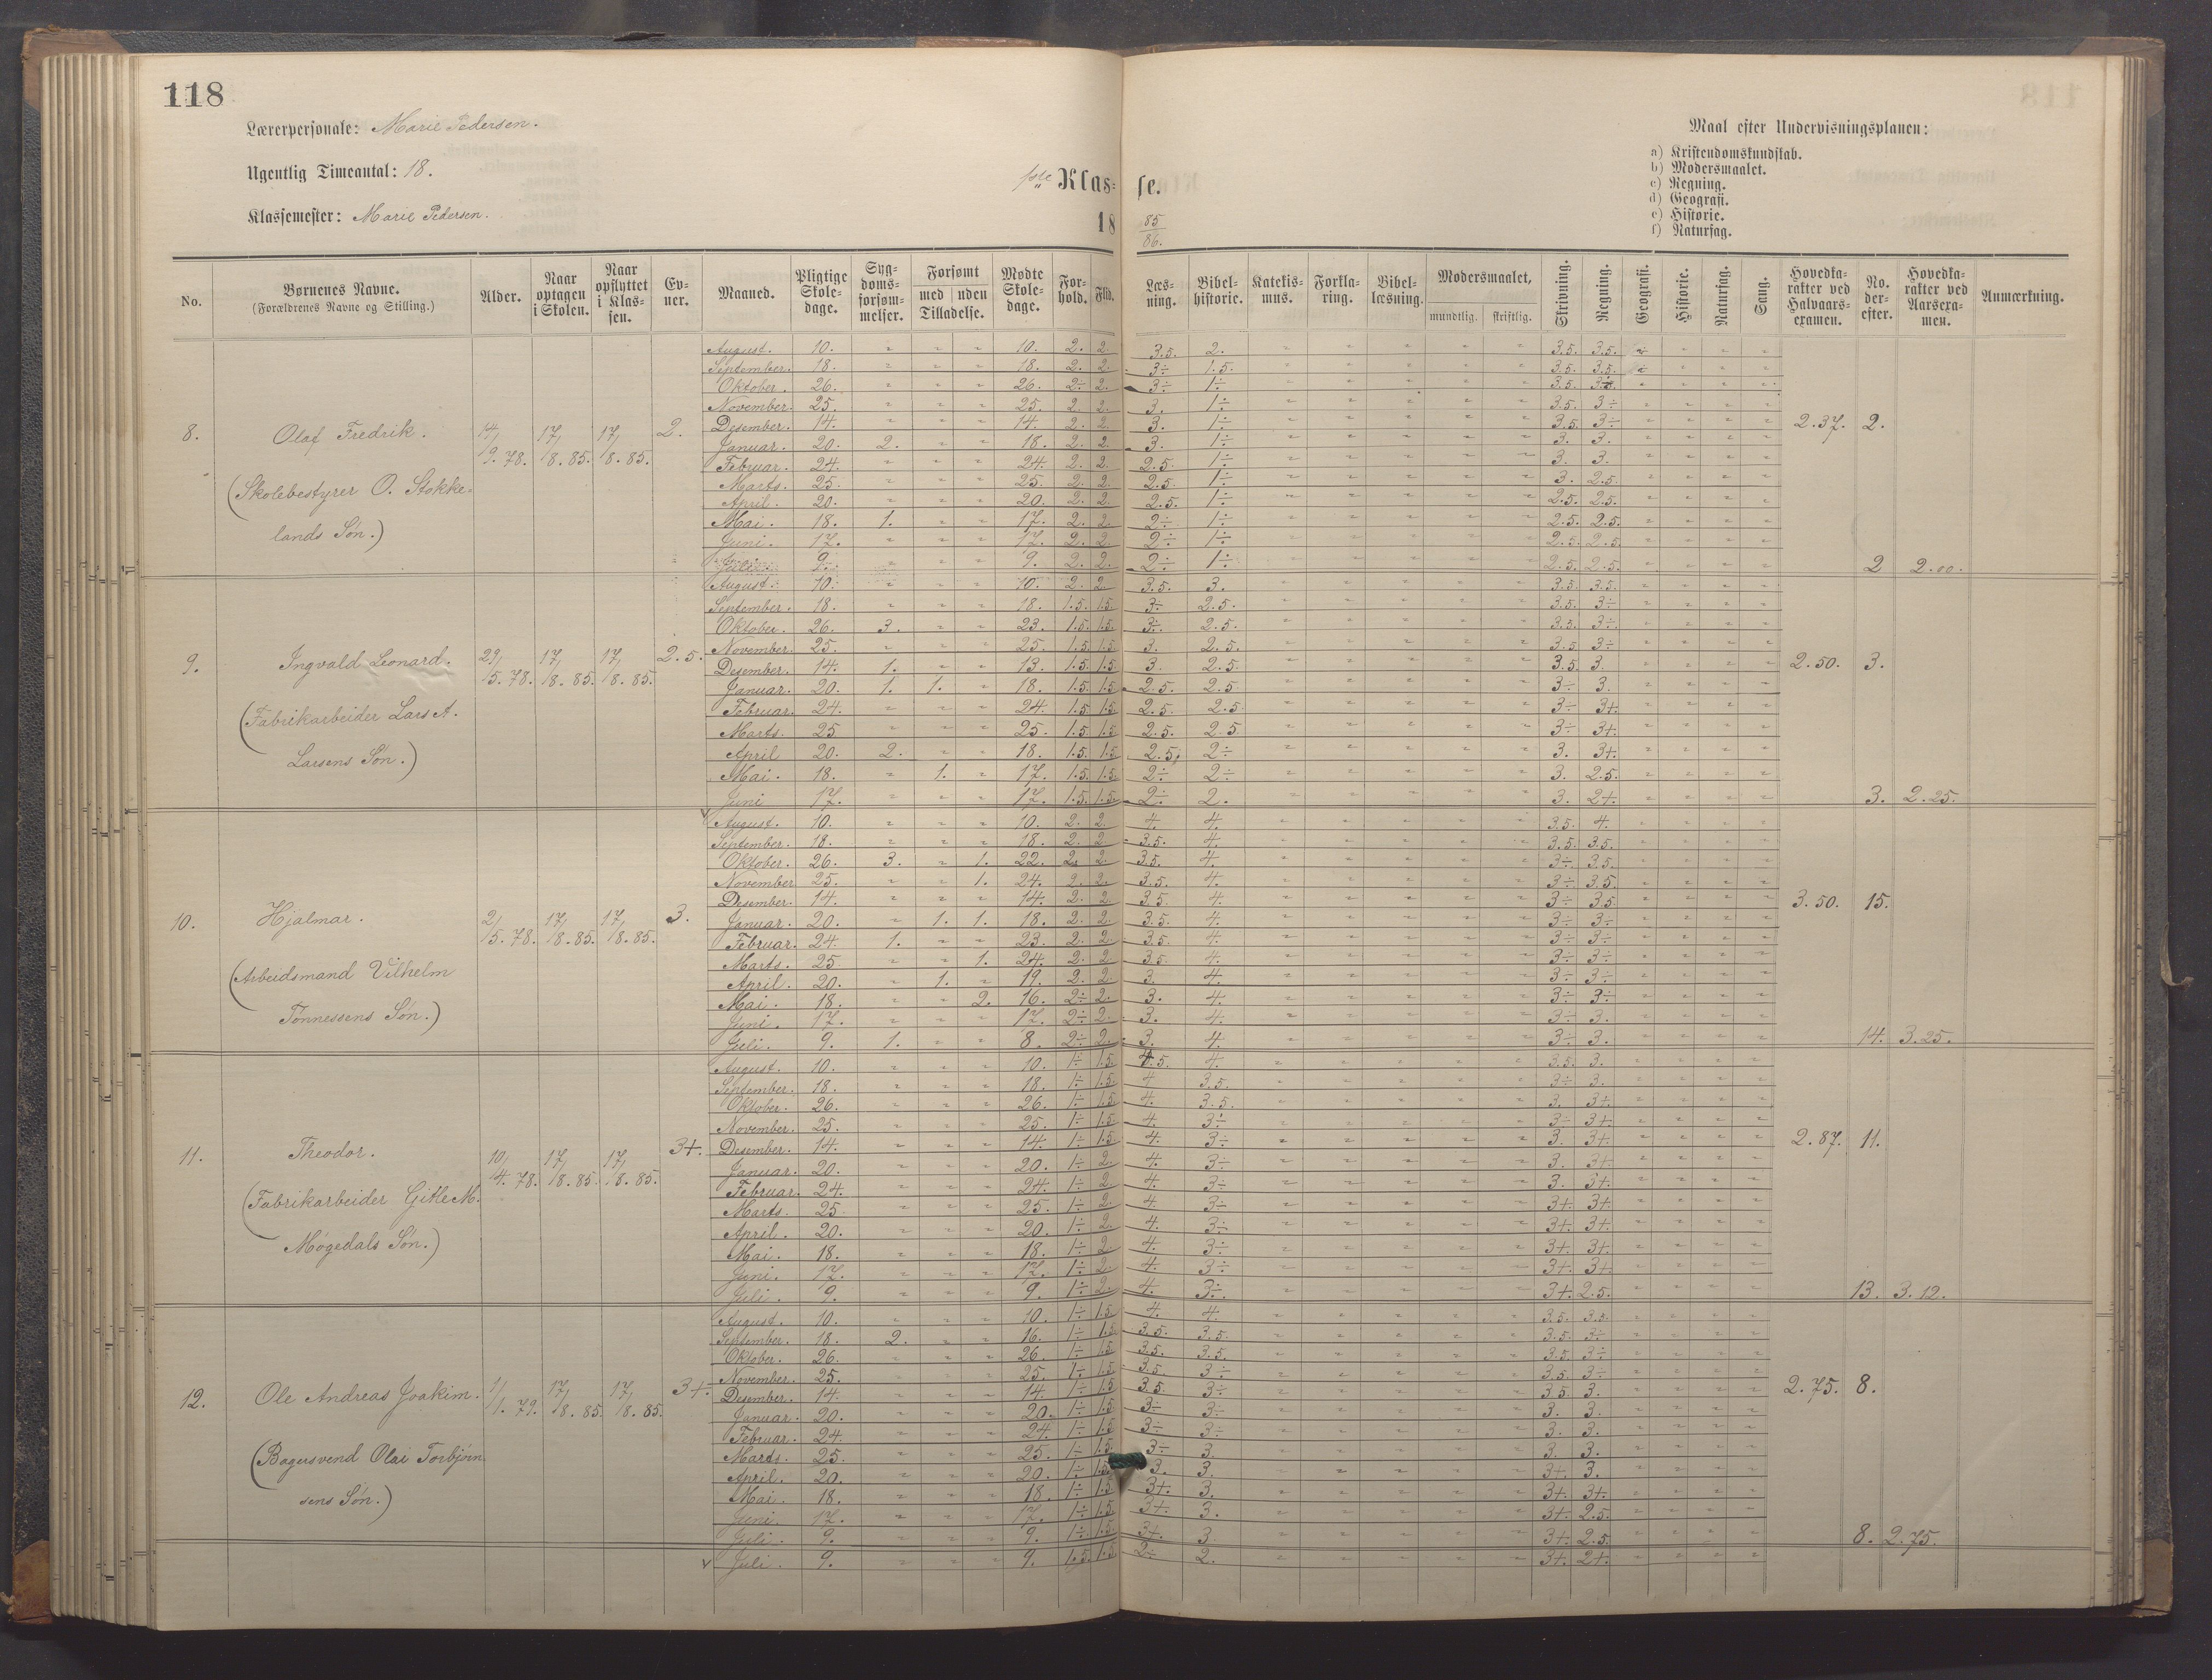 118
Lærerpersonale: Marie Pedersen.
Ugentlig Timeantal: 18.
Klassemester: Marie Pedersen.
1ste Klasse.
18 85/86.
Maal efter Undervisningsplanen:
a) Kristendomskundskab.
b) Modersmaalet.
c) Regning.
d) Geografi.
e) Historie.
f) Naturfag.
No. Børnenes Navne. (Forældrenes Navne og Stilling.) Alder. Naar optagen i Skolen. Naar opflyttet i Klassen. Evner. Maaned. Pligtige Skoledage. Sygdomsforsømmelser. Forsømt med uden Tilladelse. Mødte Skoledage. Forhold. Flid. Læsning. Bibelhistorie. Katekismus. Forklaring. Bibellæsning. Modersmaalet, mundtlig. skriftlig. Skrivning. Regning. Geografi. Historie. Naturfag. Sang. Hovedkarakter ved Halvaarsexamen. No. derefter. Hovedkarakter ved Aarsexamen. Anmærkning.
8. Olaf Fredrik. 14/9. 78. 17/8. 85. 17/8. 85. 2. 2.37. 2.
(Skolebestyrer O. Stokke-
lands Søn.)
August. 10. " " " 10. 2. 2. 3.5. 2. " " " " " 3.5. 3.5.
September. 18. " " " 18. 2. 2. 3÷ 1.5. " " " " " 3.5. 3.5.
Oktober. 26. " " " 26. 2÷ 2. 3÷ 1÷ " " " " " 3.5.
November. 25. " " " 25. 2. 2. 3. 1÷ " " " " " 3.5. 3÷
Desember. 14. " " " 14. 2. 2. 3. 1÷ " " " " " 3.5. 3÷
Januar. 20. 2. " " 18. 2. 2. 3. 1÷ " " " " " 3. 3.
Februar. 24. " " " 24. 2. 2. 2.5. 1÷ " " " " " 3. 3.
Marts. 25. " " " 25. 2. 2. 2.5. 1÷ " " " " " 3. 2.5.
April. 20. " " " 20. 2. 2. 2.5. 1÷ " " " " " 2.5. 2.5.
Mai. 18. 1. " " 17. 2. 2. 2÷ 1÷ " " " " " 2.5. 2.5.
Juni. 17. " " " 17. 2. 2. 2÷ 1÷ " " " " " 2.5. 2.5.
Juli. 9. " " " 9. 2. 2. 2÷ 1÷ " " " " " 2.5. 2.5. 2 2.00.
9. Ingvald Leonard. 29/5. 78. 17/8. 85. 17/8. 85. 2.5. 2.50. 3.
(Fabrikarbeider Lars A.
Larsens Søn.)
August. 10. " " " 10. 2. 2. 3.5. 3. " " " " " 3.5. 3.5.
September. 18. " " " 18. 1.5. 1.5. 3÷ 2.5. " " " " " 3.5. 3÷
Oktober. 26. 3. " " 23. 1.5. 1.5. 3÷ 2.5. " " " " " 3.5. 3÷
November. 25. " " " 25. 1.5. 1.5. 3. 2.5. " " " " " 3.5 3÷
Desember. 14. 1. " " 13. 1.5. 1.5. 3. 2.5. " " " " " 3.5. 3.
Januar. 20. 1. 1. " 18. 1.5. 1.5. 2.5. 2.5 " " " " " 3÷ 3.
Februar. 24. " " " 24. 1.5. 1.5. 2.5. 2.5 " " " " " 3÷ 3+
Marts. 25 " " " 25. 1.5. 1.5. 2.5. 2.5 " " " " " 3÷ 3+.
April 20. 2. " " 18. 1.5. 1.5 2.5. 2÷ " " " " " 3. 3+
Mai. 18. " 1. " 17. 1.5. 1.5. 2÷ 2÷ " " " " " 3. 2.5.
Juni 17. " " " 17. 1.5. 1.5. 2÷ 2. " " " " " 3. 2+. 3. 2.25.
10. Hjalmar. 2/5. 78. 17/8. 85. 17/8. 85. 3. 3.50. 15.
(Arbeidsmand Vilhelm
Tønnessens Søn.)
August. 10. " " " 10. 2. 2. 4. 4. " " " " " 3.5. 4.
September. 18. " " " 18. 2. 2 3.5. 4. " " " " " 3.5. 3.5.
Oktober. 26. 3. " 1. 22. 2. 2. 3.5. 4. " " " " " 3÷ 3.5.
November 25. " " 1. 24. 2. 2. 3.5. 4. " " " " " 3÷ 3.5.
Desember. 14. " " " 14. 2. 2. 3.5. 4. " " " " " 3÷ 3.5
Januar. 20. " 1. 1. 18. 2. 2. 3.5. 4. " " " " " 3÷ 3÷
Februar. 24. 1. " " 23. 2. 2. 3.5. 4. " " " " " 3÷ 3÷
Marts. 25 " " 1. 24. 2. 2 3.5. 4. " " " " " 3÷ 3÷
April. 20. " 1. " 19. 2. 2. 3. 4. " " " " " 3÷ 3÷
Mai. 18. " " 2. 16. 2÷ 2. 3. 4. " " " " " 3÷ 3÷
Juni. 17. " " " 17. 2÷ 2. 3. 4. " " " " " 3÷ 3.
Juli. 9. 1. " " 8. 2÷ 2. 3. 4. " " " " " 3÷ 3. 14. 3.25.
11. Theodor. 10/4. 78. 17/8. 85. 17/8. 85. 3+. 2.87. 11.
(Fabrikarbeider Gitle M.
Møgedals Søn.)
August. 10. " " " 10. 1÷ 1.5. 4.5. 4. " " " " " 3.5. 3.
September. 18. " " " 18. 1÷ 1.5. 4 3.5. " " " " " 3÷ 3.
Oktober. 26. " " " 26. 1÷ 1.5. 4. 3.5. " " " " " 3. 3+.
November. 25. " " " 25. 1÷ 1.5 4. 3÷ " " " " " 3÷ 3+.
Desember. 14. " " " 14. 1÷ 1.5 4. 3÷ " " " " " 3. 3+.
Januar. 20. " " " 20. 1÷ 2. 4. 3÷ " " " " " 3. 3+.
Februar. 24. " " " 24. 1÷ 2. 4. 3÷ " " " " " 3. 3+.
Marts. 25. " " " 25. 1÷ 2. 4. 3÷ " " " " " 3+. 3+.
April. 20. " " " 20. 1÷ 2. 4. 3÷ " " " " " 3+. 3+.
Mai. 18. " " " 18. 1÷ 2. 4. 3÷ " " " " " 3+. 3+.
Juni. 17. " " " 17. 1÷ 2. 4. 3÷ " " " " " 3+. 3+.
Juli. 9. " " " 9. 1÷ 2. 4. 3÷. " " " " " 3+. 2.5. 13. 3.12.
12. Ole Andreas Joakim. 1/1. 79. 17/8. 85. 17/8. 85. 3+. 2.75. 8.
(Bagersvend Olai Torbjørn
sens Søn.)
August. 10. " " " 10. 1÷ 1.5 4. 4. " " " " " 3.5. 3.5.
September. 18. 2. " " 16. 1÷ 1.5. 3.5. 3.5. " " " " " 3.5. 3÷
Oktober. 26. " " " 26. 1÷ 1.5 3.5. 3.5. " " " " " 3.5. 3÷
November. 25. " " " 25. 1÷ 1.5. 3.5. 3÷ " " " " " 3.5. 3÷
Desember. 14. " " " 14. 1÷ 1.5 3.5. 3÷ " " " " " 3.5. 3.
Januar. 20. " " " 20. 1÷ 1.5 3÷ 3÷ " " " " " 3. 3.
Februar. 24. " " " 24. 1÷ 1.5 3÷ 3÷ " " " " " 3. 3.
Marts. 25. " " " 25. 1÷ 1.5. 3÷ 3. " " " " " 3. 3.
April. 20. " " " 20. 1÷ 1.5 3. 3. " " " " " 3+. 3.
Mai. 18. " " " 18. 1÷ 1.5 3+. 3. " " " " " 3+. 3+.
Juni. 17. " " " 17. 1÷ 1.5 3+. 3. " " " " " 3+. 2.5.
Juli. 9. " " " 9. 1÷ 1.5 3+. 3 " " " " " 3+. 2.5. 8. 2.75.
v Juli. 9. " " " 9. 1.5. 1.5 2÷ 2. " " " " " 3+. 2+.